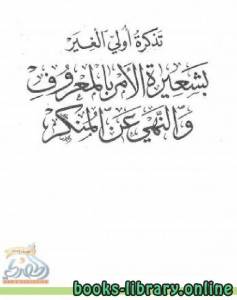 تذكرة أولي الغير
بشعيرة الأمر بالمعروف
والنهي عن المنكر
books-library.online